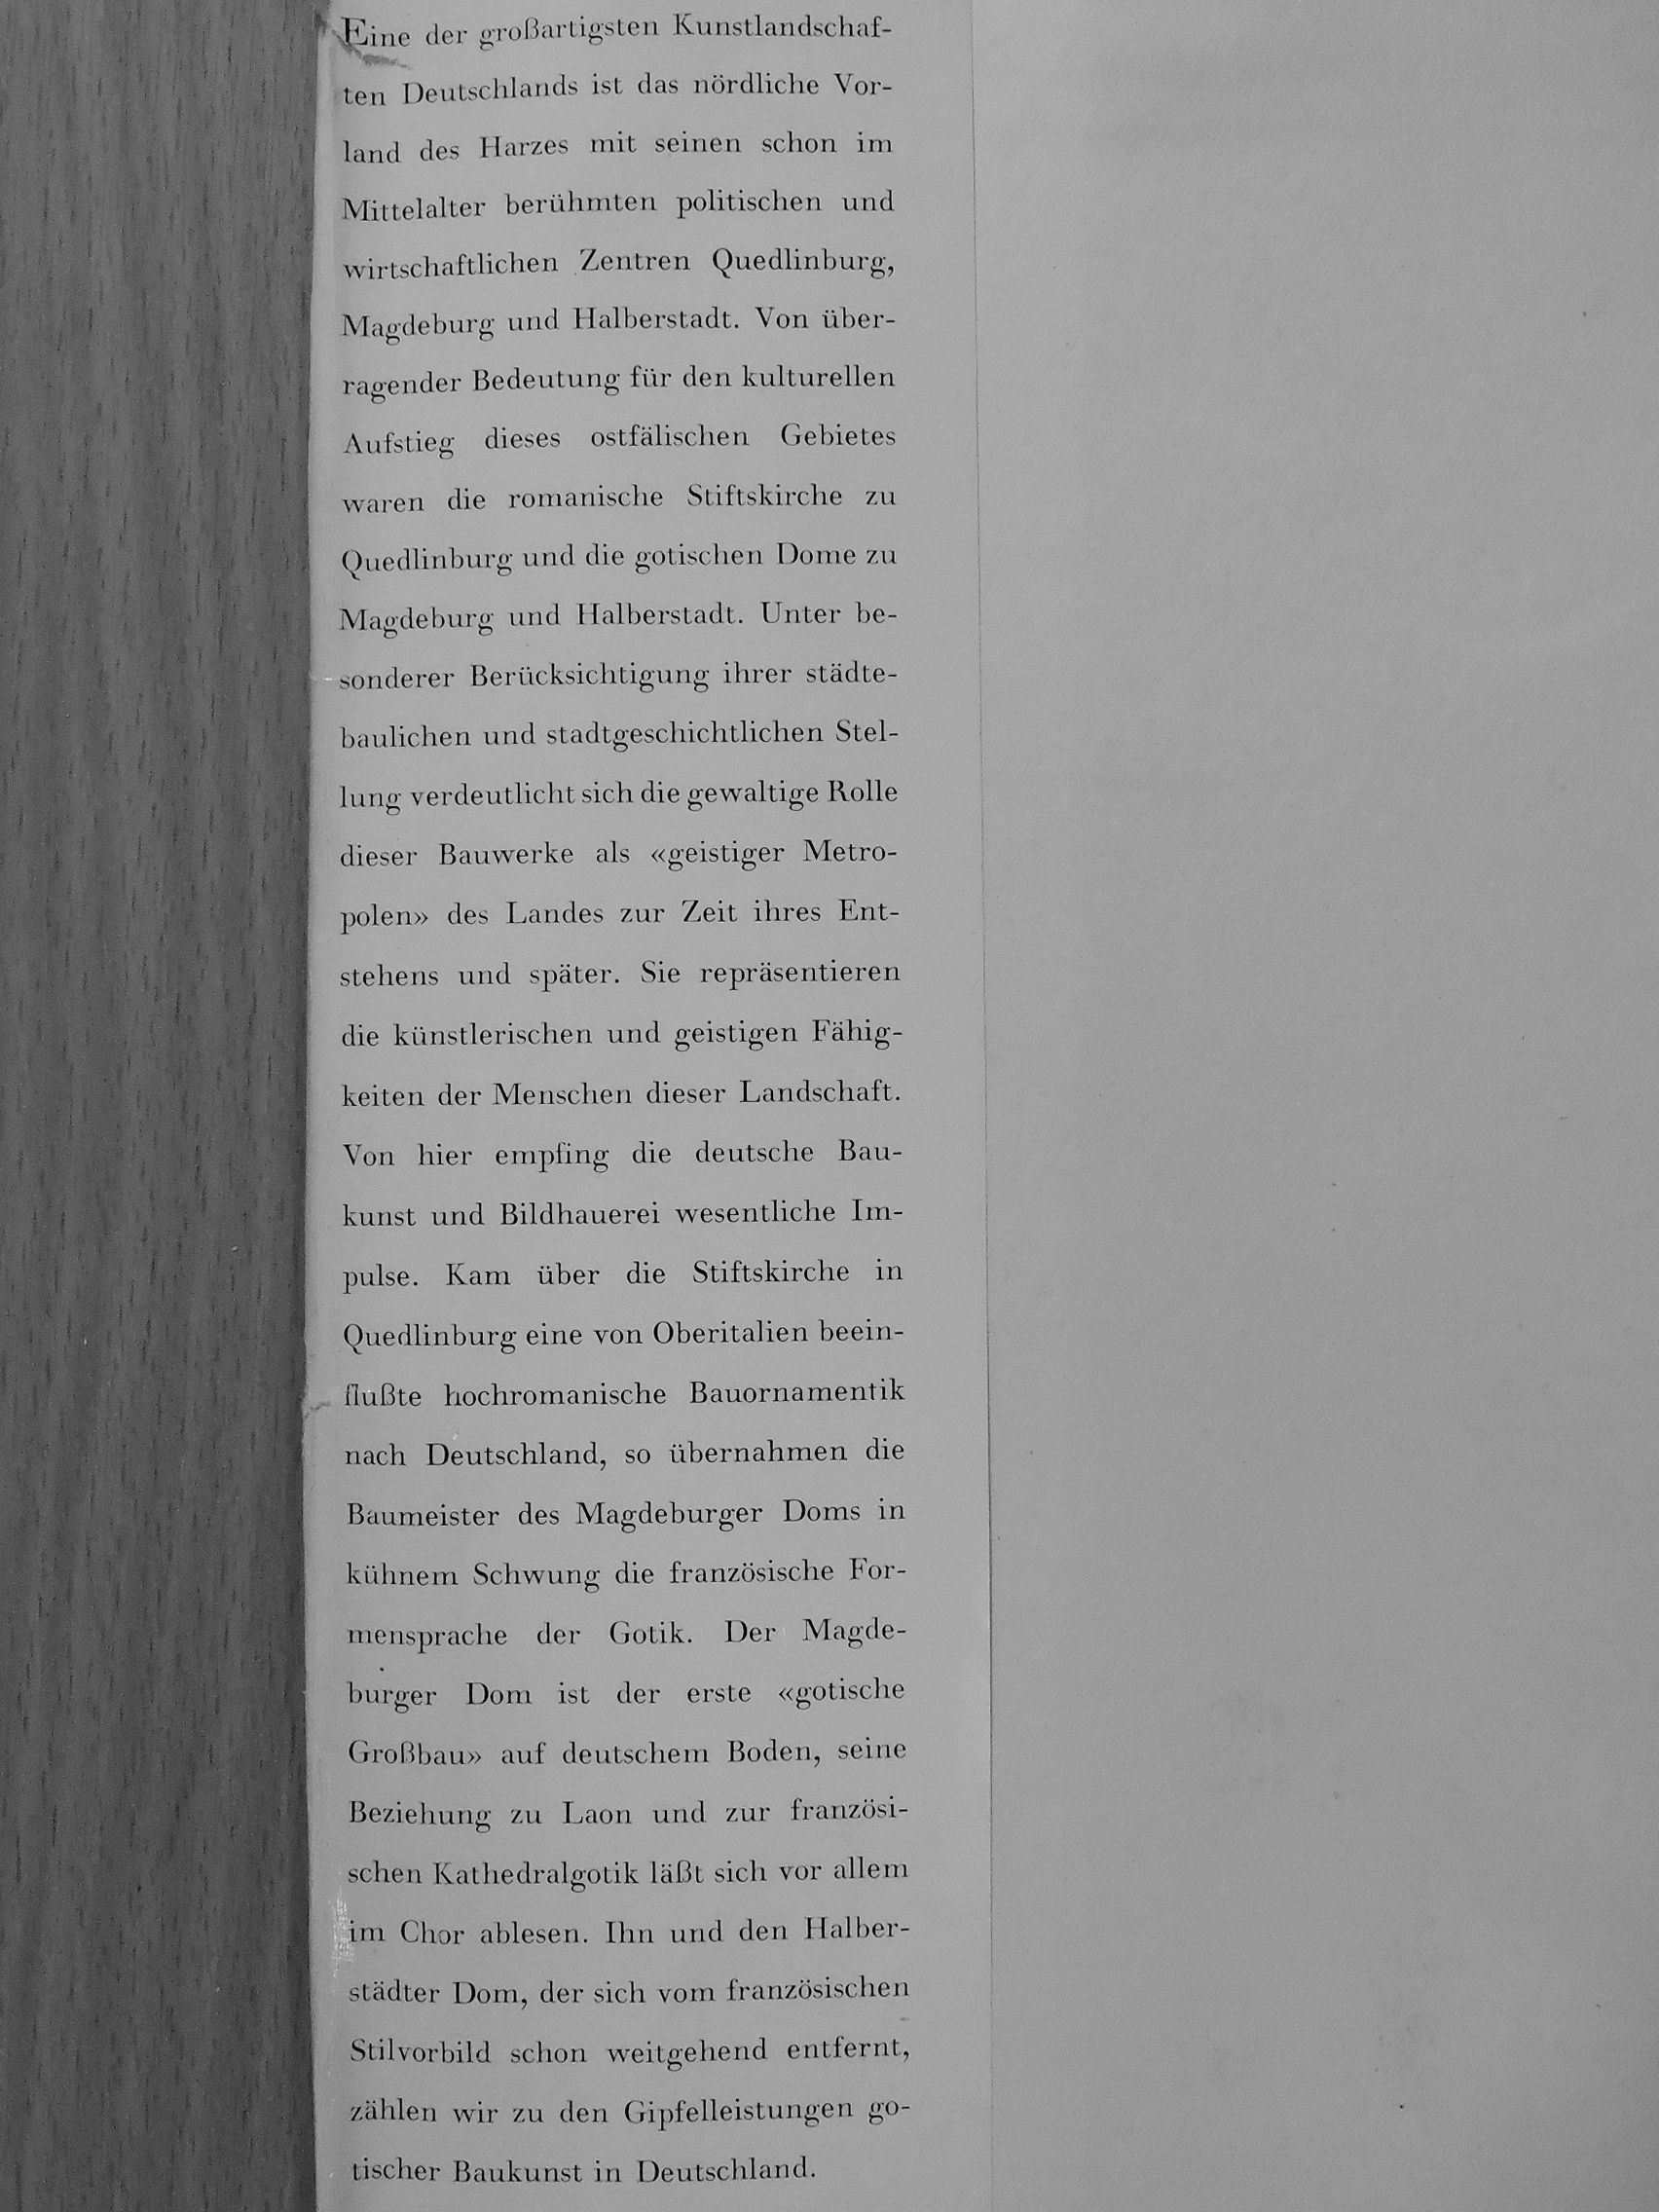 Eine der großartigsten Kunstlandschaf-
ten Deutschlands ist das nördliche Vor-
land des Harzes mit seinen schon im
Mittelalter berühmten politischen und
wirtschaftlichen Zentren Quedlinburg,
Magdeburg und Halberstadt. Von über-
ragender Bedeutung für den kulturellen
Aufstieg dieses ostfälischen Gebietes
waren die romanische Stiftskirche zu
Quedlinburg und die gotischen Dome zu
Magdeburg und Halberstadt. Unter be-
sonderer Berücksichtigung ihrer städte-
baulichen und stadtgeschichtlichen Stel-
lung verdeutlicht sich die gewaltige Rolle
dieser Bauwerke als «geistiger Metro-
polen» des Landes zur Zeit ihres Ent-
stehens und später. Sie repräsentieren
die künstlerischen und geistigen Fähig-
keiten der Menschen dieser Landschaft.
Von hier empfing die deutsche Bau-
kunst und Bildhauerei wesentliche Im-
pulse. Kam über die Stiftskirche in
Quedlinburg eine von Oberitalien beein-
flußte hochromanische Bauornamentik
nach Deutschland, so übernahmen die
Baumeister des Magdeburger Doms in
kühnem Schwung die französische For-
mensprache der Gotik. Der Magde-
burger Dom ist der erste «gotische
Großbau» auf deutschem Boden, seine
Beziehung zu Laon und zur französi-
schen Kathedralgotik läßt sich vor allem
im Chor ablesen. Ihn und den Halber-
städter Dom, der sich vom französischen
Stilvorbild schon weitgehend entfernt,
zählen wir zu den Gipfelleistungen go-
tischer Baukunst in Deutschland.